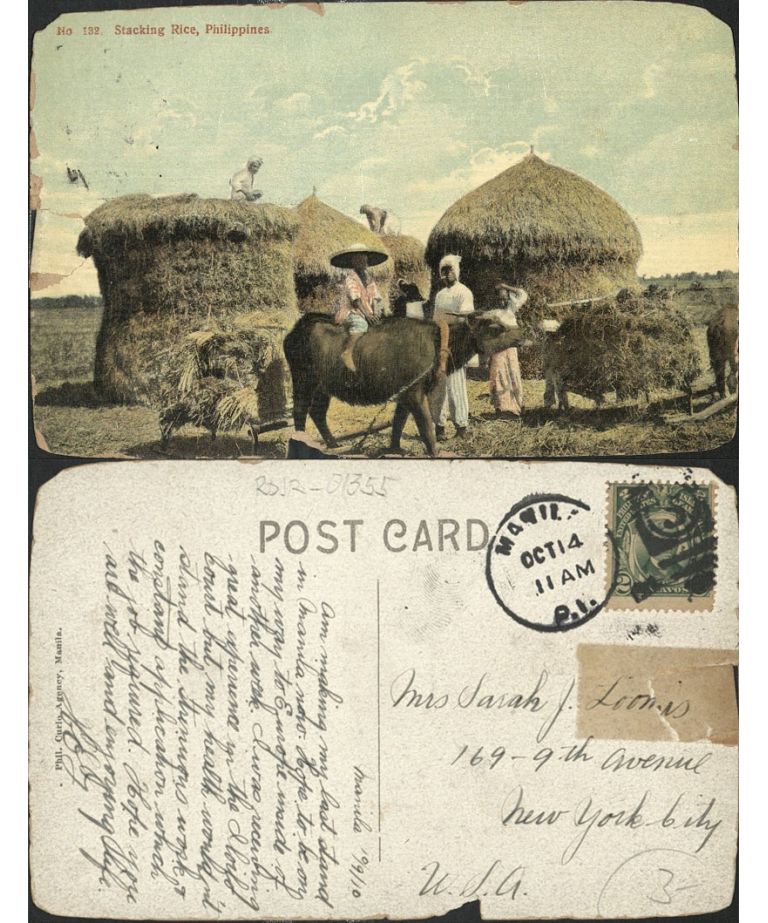 No 132. Stacking Rice, Philippines
POST CARD
MANILA
OCT 14
11 AM
P.I.
Manila 10/9/10
Am making my last stand
in Manila now. Hope to be on
my way to Europe inside of
another week. I was needing
great experience in the
but my health wouldn't
stand the strenuous work &
constant application which
the job required. Hope you
are well and enjoying life.
Phil. Curio Agency, Manila.
Mrs Sarah J. Loomis
169-9th Avenue
New York City
U.S.A.
3-